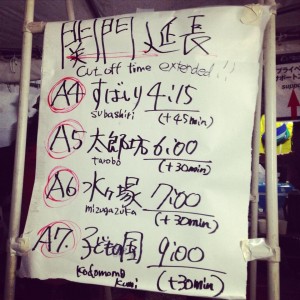 関門延長
Cut off time extended!!
A4 すばしり 4:15
subashiri (+45min)
A5 太郎坊 6:00
tarobo (+30min)
A6 水ヶ塚 7:00
mizugazuka (+30min)
A7. 子どもの国 9:00
Kodomono (+30min)
Kuni
プライベ
サポート
suppo